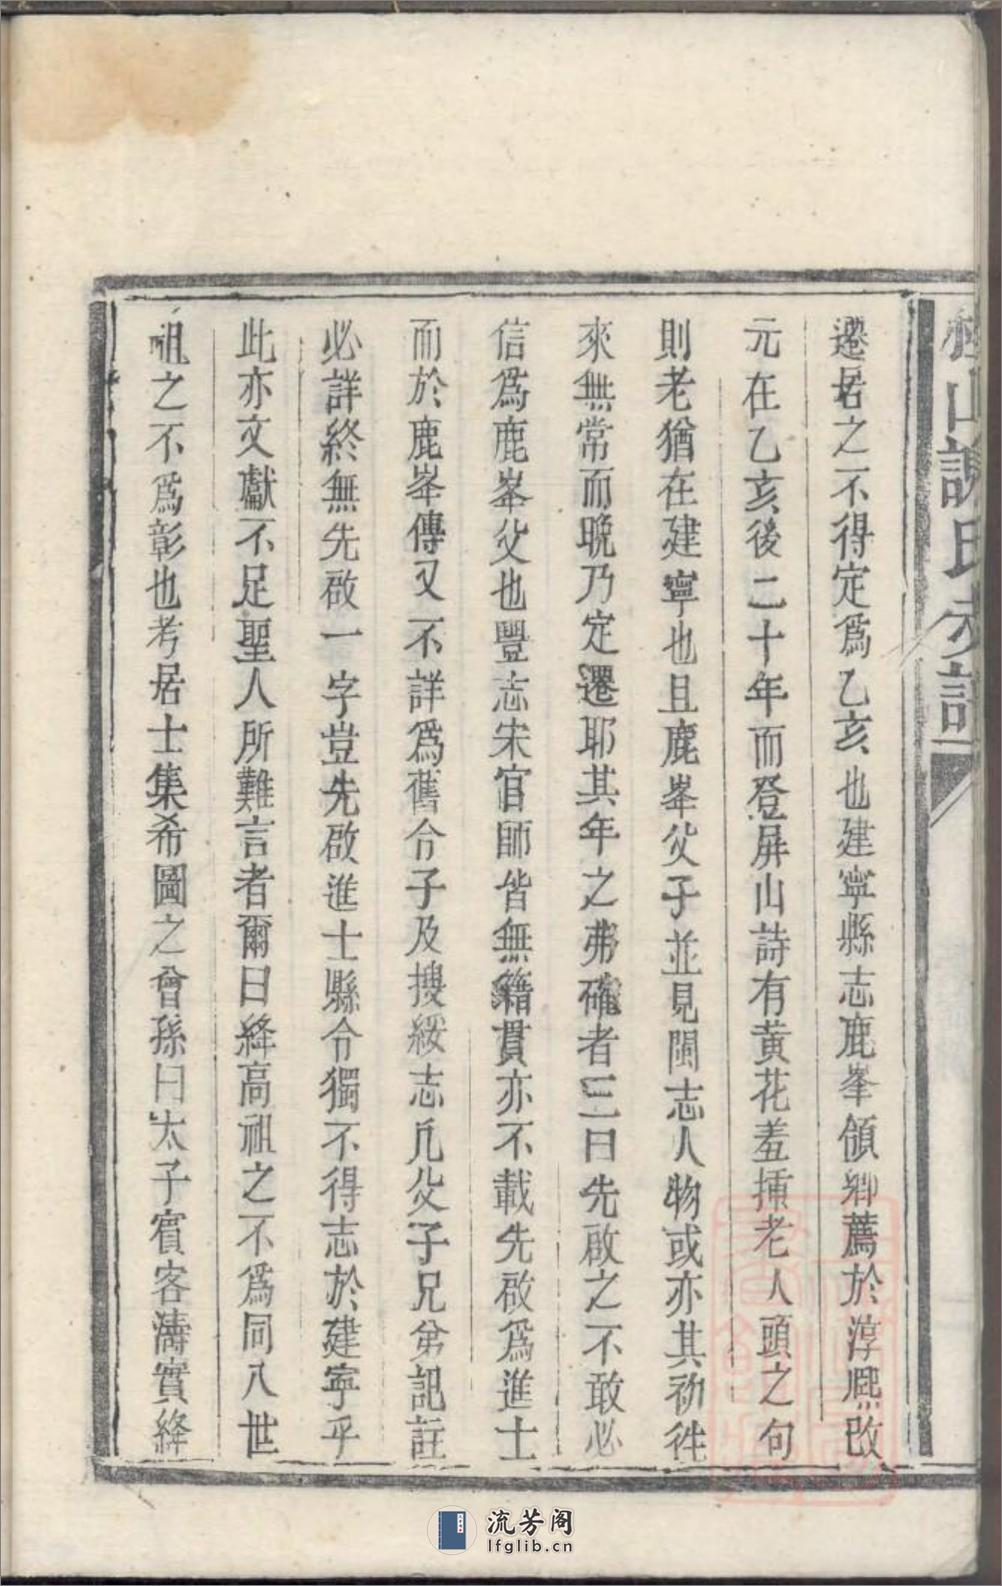 遷居之不得定爲乙亥也建寧縣志鹿峯領鄉薦於淳熙改
元在乙亥後二十年而登屏山詩有黃花羞揷老人頭之句
則老猶在建寧也且鹿峯父子並見閩志人物或亦其初徃
來無常而晚乃定遷耶其年之弗確者三曰先啟之不敢必
信爲鹿峯父也豐志宋官師皆無籍貫亦不載先啟爲進士
而於鹿峯傳又不詳爲舊令子及搜綏志凡父子兄弟記註
必詳終無先啟一字豈先啟進士縣令獨不得志於建寧乎
此亦文獻不足聖人所難言者爾曰絳高祖之不爲同八世
祖之不爲彰也考居士集希圖之曾孫曰太子賓客濤實絳
山謝氏
流芳阁
lfglib.cn